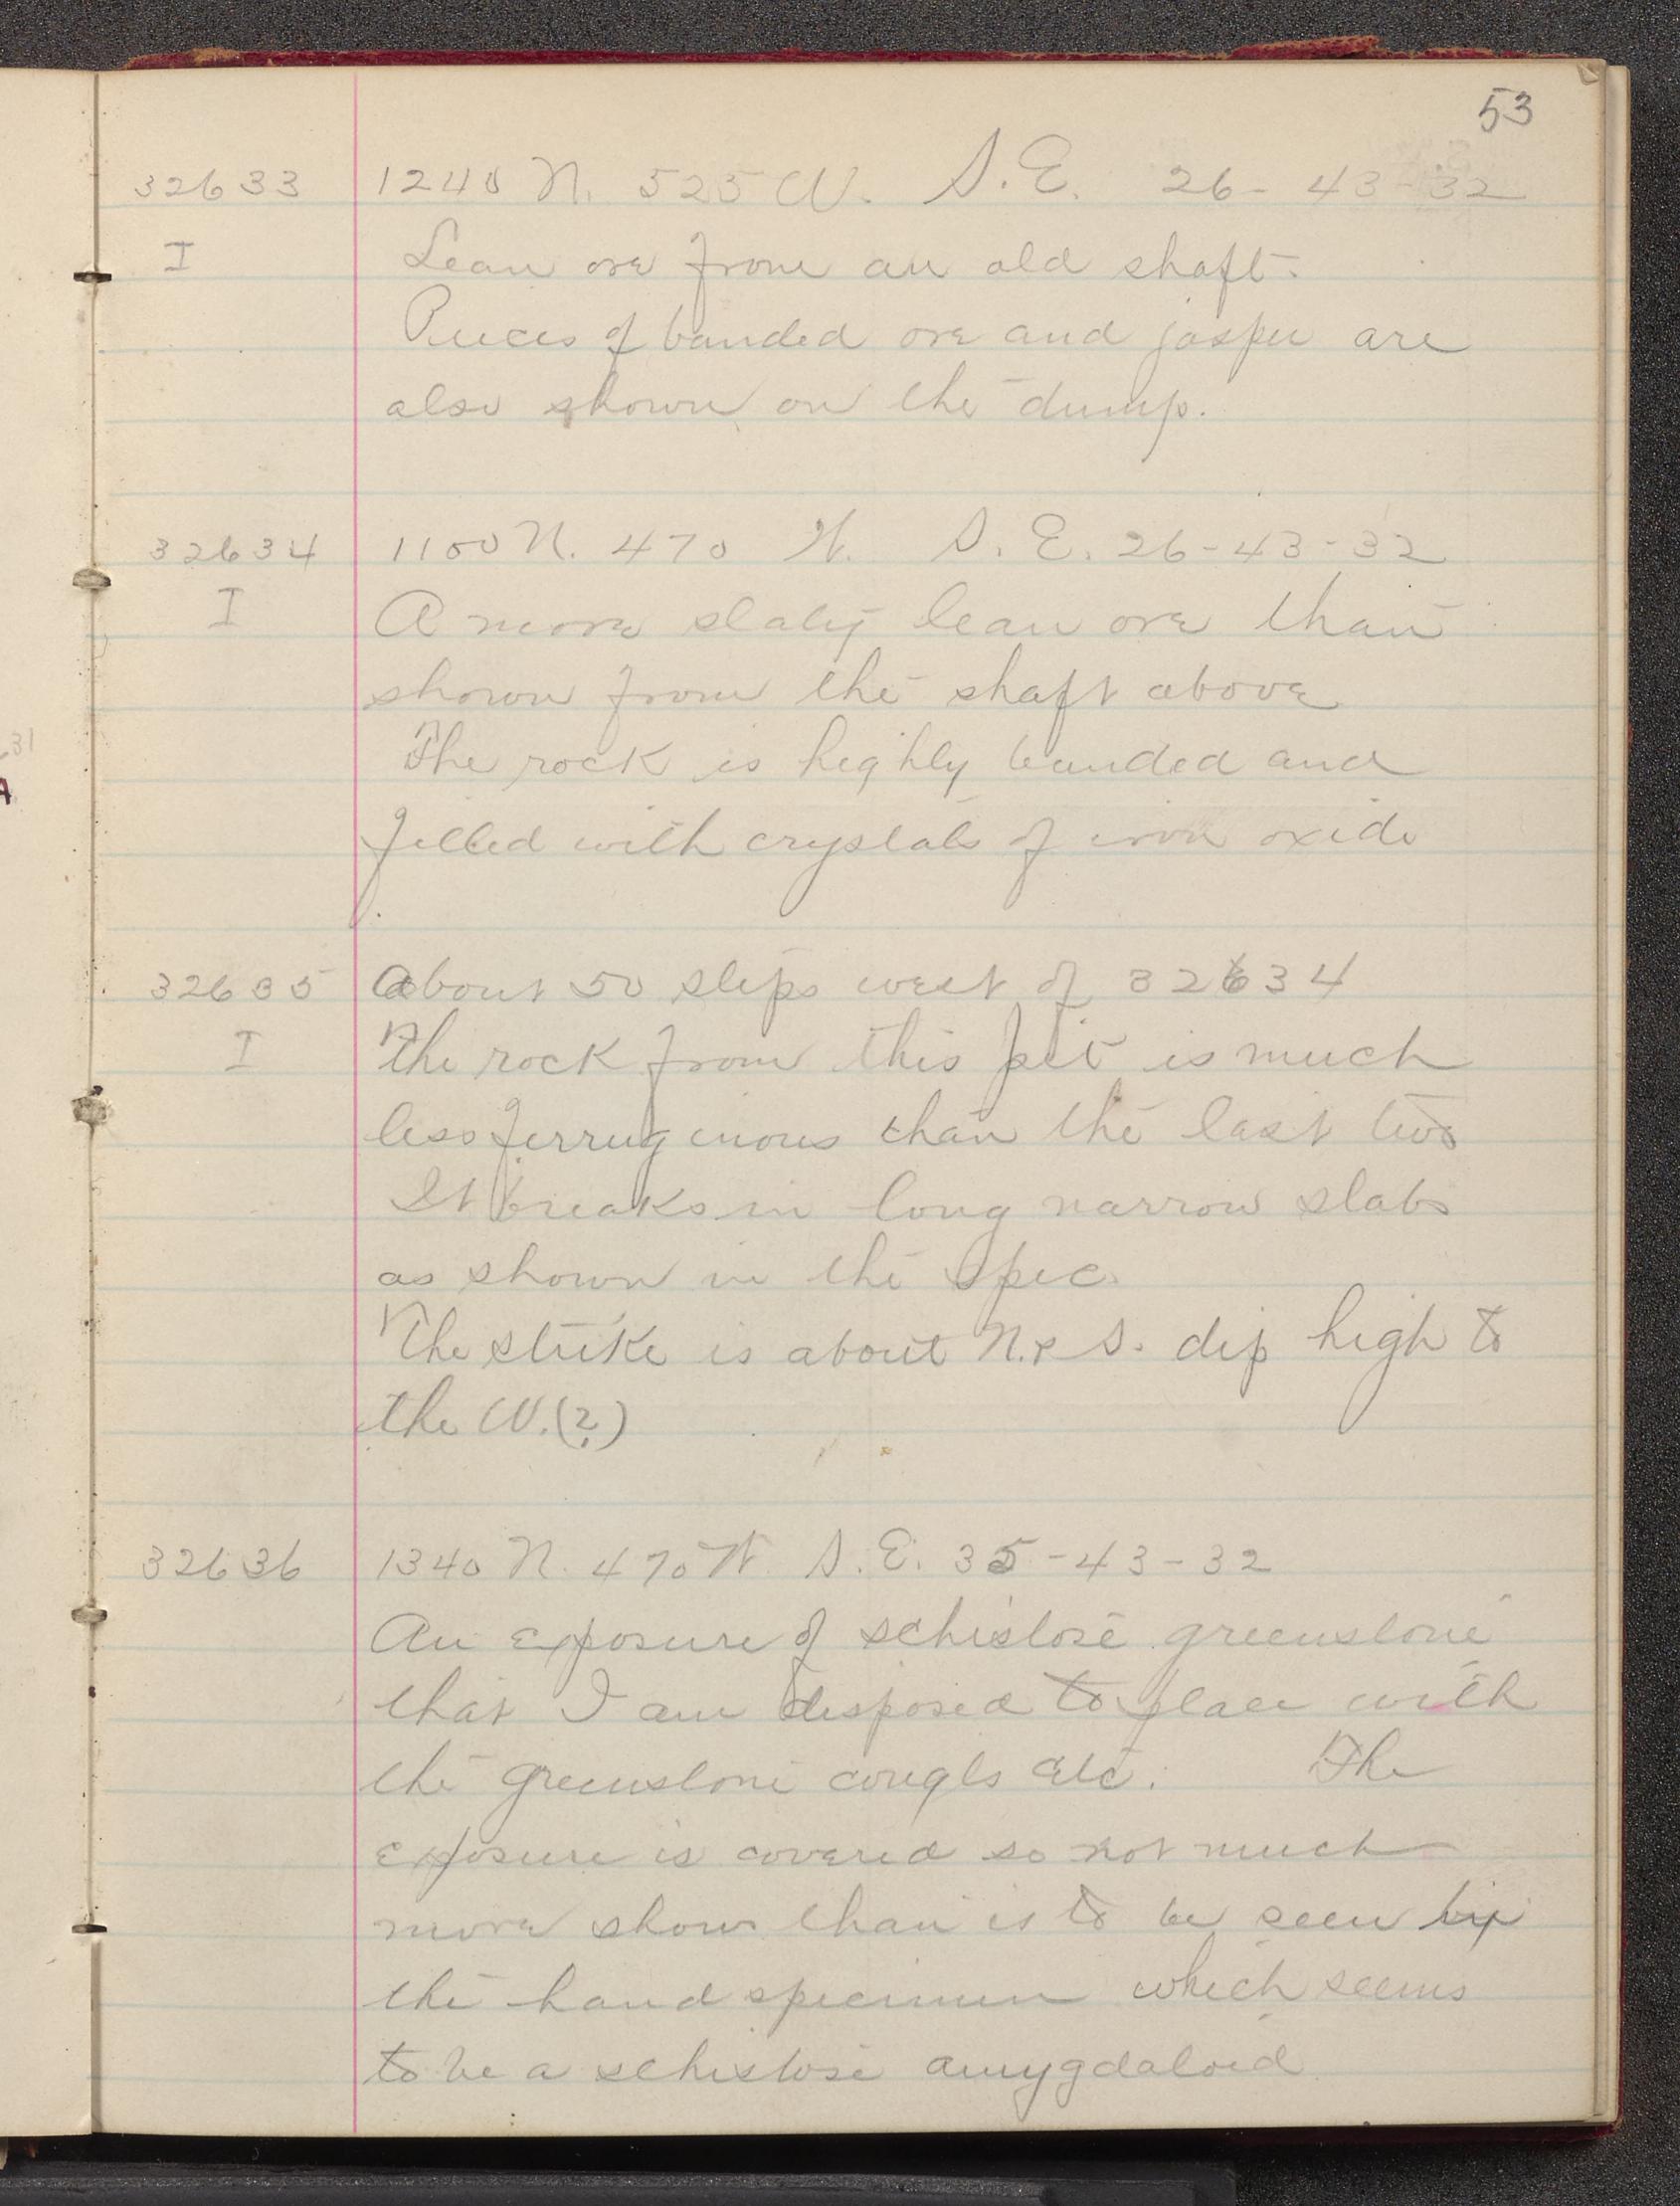 53
32633 1240 N. 525 W. S.E. 26-43-32
I Lean ore from an old shaft.
Pieces of banded ore and jasper are
also shown on the dump.
32634 1100 N. 470 W. S.E. 26-43-32
I A more slaty lean ore than
shown from the shaft above
The rock is highly banded and
filled with crystals of iron oxide
32635 About 50 steps west of 32634
I The rock from this pit is much
less ferruginous than the last two
It breaks in long narrow slabs
as shown in the spec.
The strike is about N. & S. dip high to
the W. (?)
32636 1340 N. 470 W. S.E. 35-43-32
An exposure of schistose greenstone
that I am disposed to place with
the greenstone congls etc. The
exposure is covered so not much
more shows than is to be seen in
the hand specimen which seems
to be a schistose amygdaloid